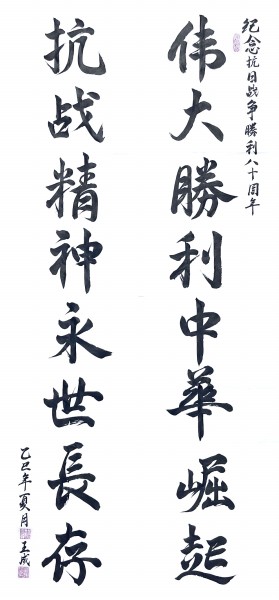 纪念抗日战争勝利八十周年
伟大勝利中華崛起
抗战精神永世長存
乙巳年夏月
玉成